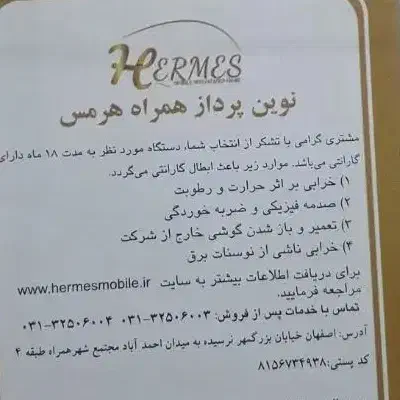 HERMES
نوین پرداز همراه هرمس
مشتری گرامی با تشکر از انتخاب شما، دستگاه مورد نظر به مدت ۱۸ ماه دارای
گارانتی می‌باشد. موارد زیر باعث ابطال گارانتی می‌گردد.
۱) خرابی بر اثر حرارت و رطوبت
۲) صدمه فیزیکی و ضربه خوردگی
۳) تعمیر و باز شدن گوشی خارج از شرکت
۴) خرابی ناشی از نوسنات برق
برای دریافت اطلاعات بیشتر به سایت www.hermesmobile.ir
مراجعه فرمایید.
تماس با خدمات پس از فروش: ۳۲۵۰۶۰۰۳-۰۳۱ ۳۲۵۰۶۰۰۴-۰۳۱
آدرس: اصفهان خیابان بزرگمهر نرسیده به میدان احمد آباد مجتمع شهر همراه طبقه ۴
کد پستی: ۸۱۵۶۷۳۴۹۳۸